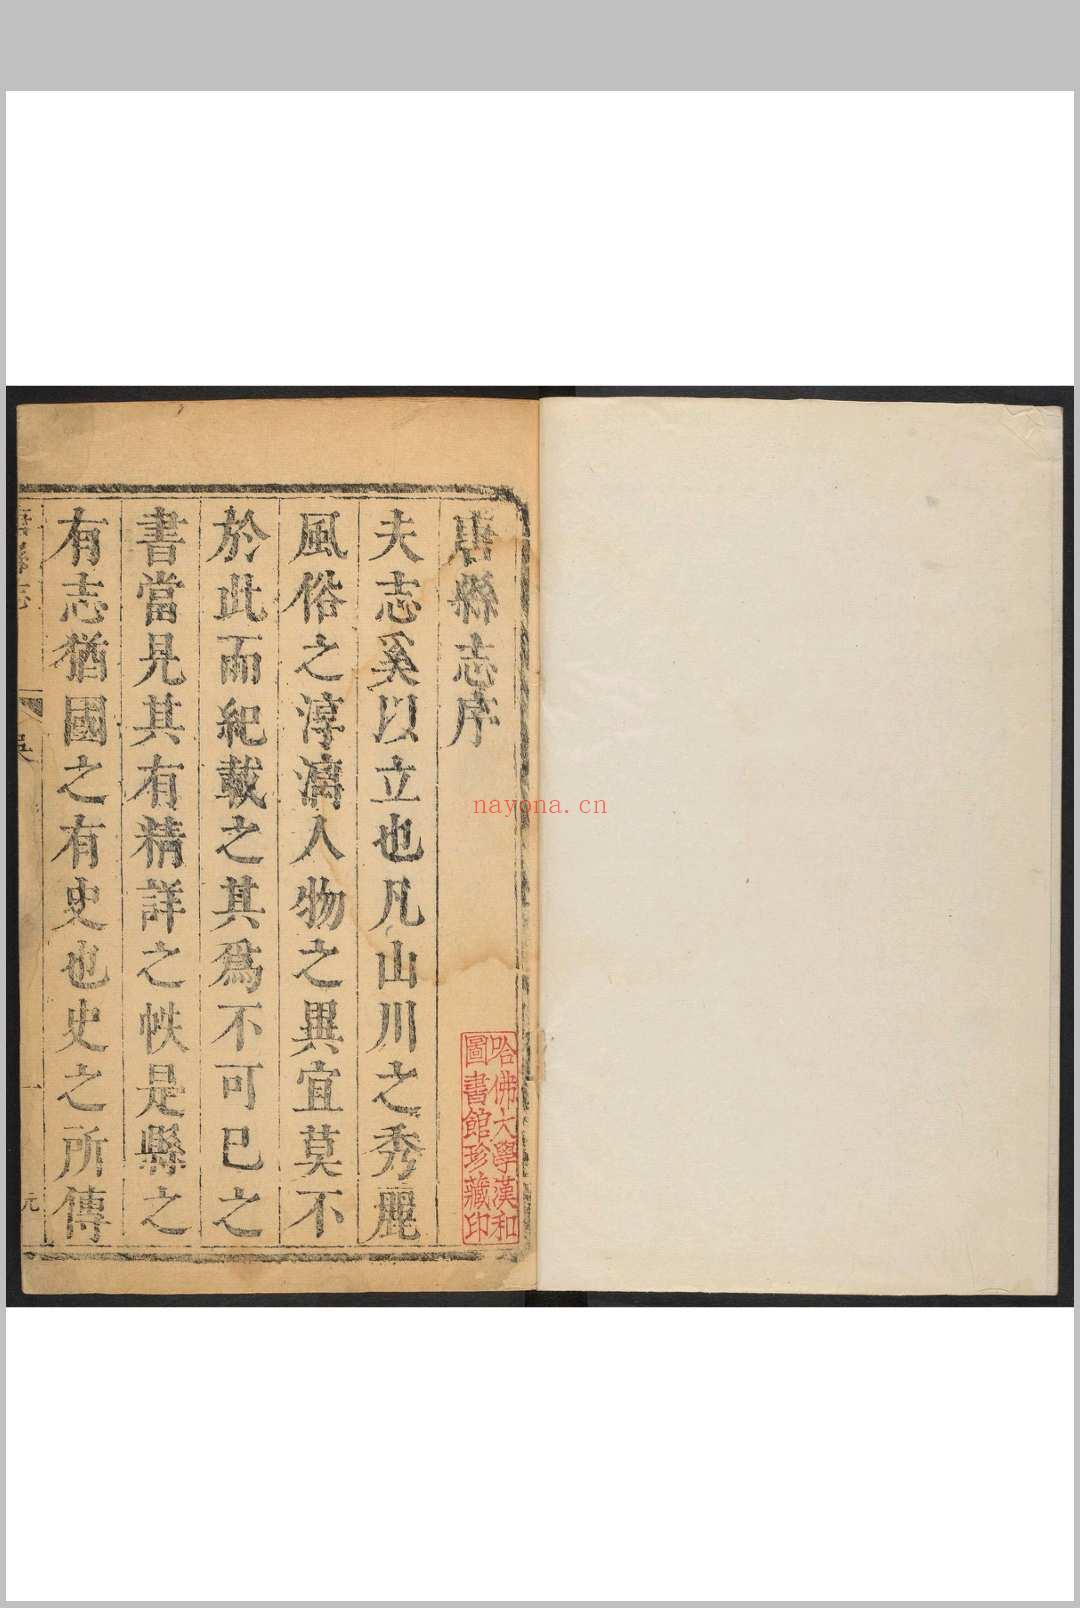 唐縣志序
夫志奚以立也凡山川之秀麗
風俗之淳漓人物之異宜莫不
於此而紀載之其爲不可已之
書當見其有精詳之帙是縣之
有志猶國之有史也史之所傳
唐縣志
吳
一
元
哈佛大學漢和
圖書館珍藏印
nayona.cn